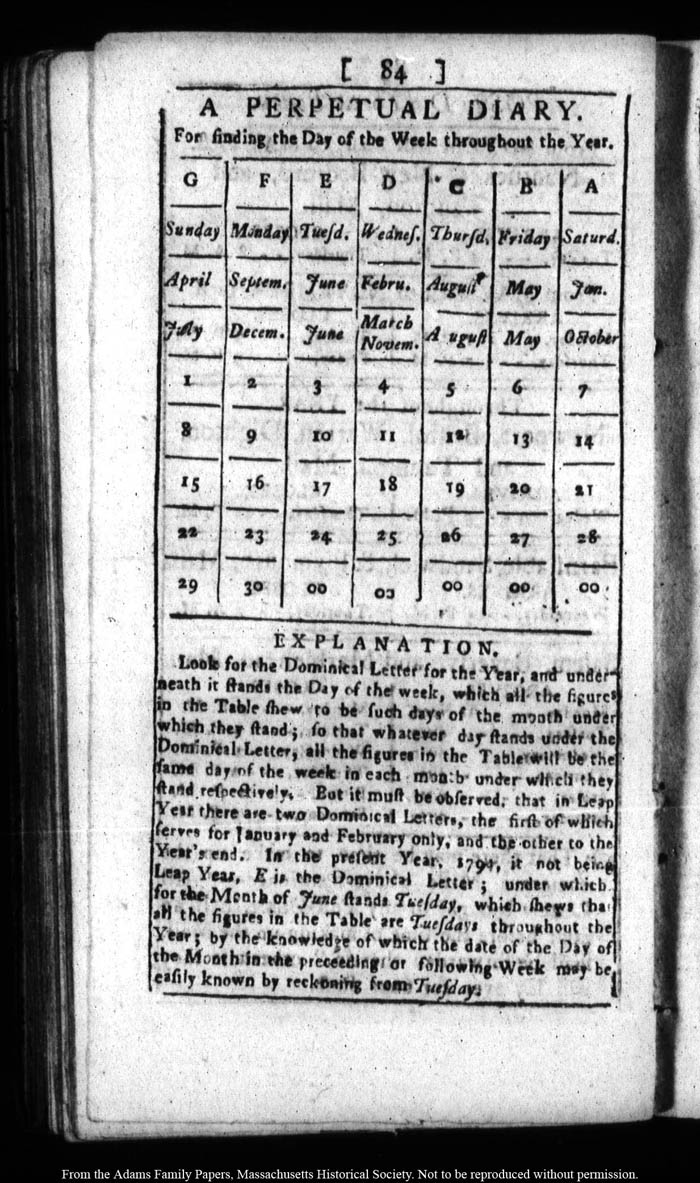 [ 84 ]
A PERPETUAL DIARY.
For finding the Day of the Week throughout the Year.
G F E D C B A
Sunday Monday Tueſd. Wedneſ. Thurſd. Friday Saturd.
April Septem. June Febru. Auguſt May Jan.
July Decem. June March Novem. A uguſt May October
1 2 3 4 5 6 7
8 9 10 11 12 13 14
15 16 17 18 19 20 21
22 23 24 25 26 27 28
29 30 00 00 00 00 00
EXPLANATION.
Look for the Dominical Letter for the Year, and under-
neath it ſtands the Day of the week, which all the figures
in the Table ſhew to be ſuch days of the month under
which they ſtand; ſo that whatever day ſtands under the
Dominical Letter, all the figures in the Table will be the
ſame day of the week in each month under which they
ſtand reſpectively. But it muſt be obſerved, that in Leap
Year there are two Dominical Letters, the firſt of which
ſerves for January and February only, and the other to the
Year's end. In the preſent Year, 1794, it not being
Leap Year, E is the Dominical Letter; under which
for the Month of June ſtands Tueſday, which ſhews that
all the figures in the Table are Tueſdays throughout the
Year; by the knowledge of which the date of the Day of
the Month in the preceeding or following Week may be
eaſily known by reckoning from Tueſday.
From the Adams Family Papers, Massachusetts Historical Society. Not to be reproduced without permission.